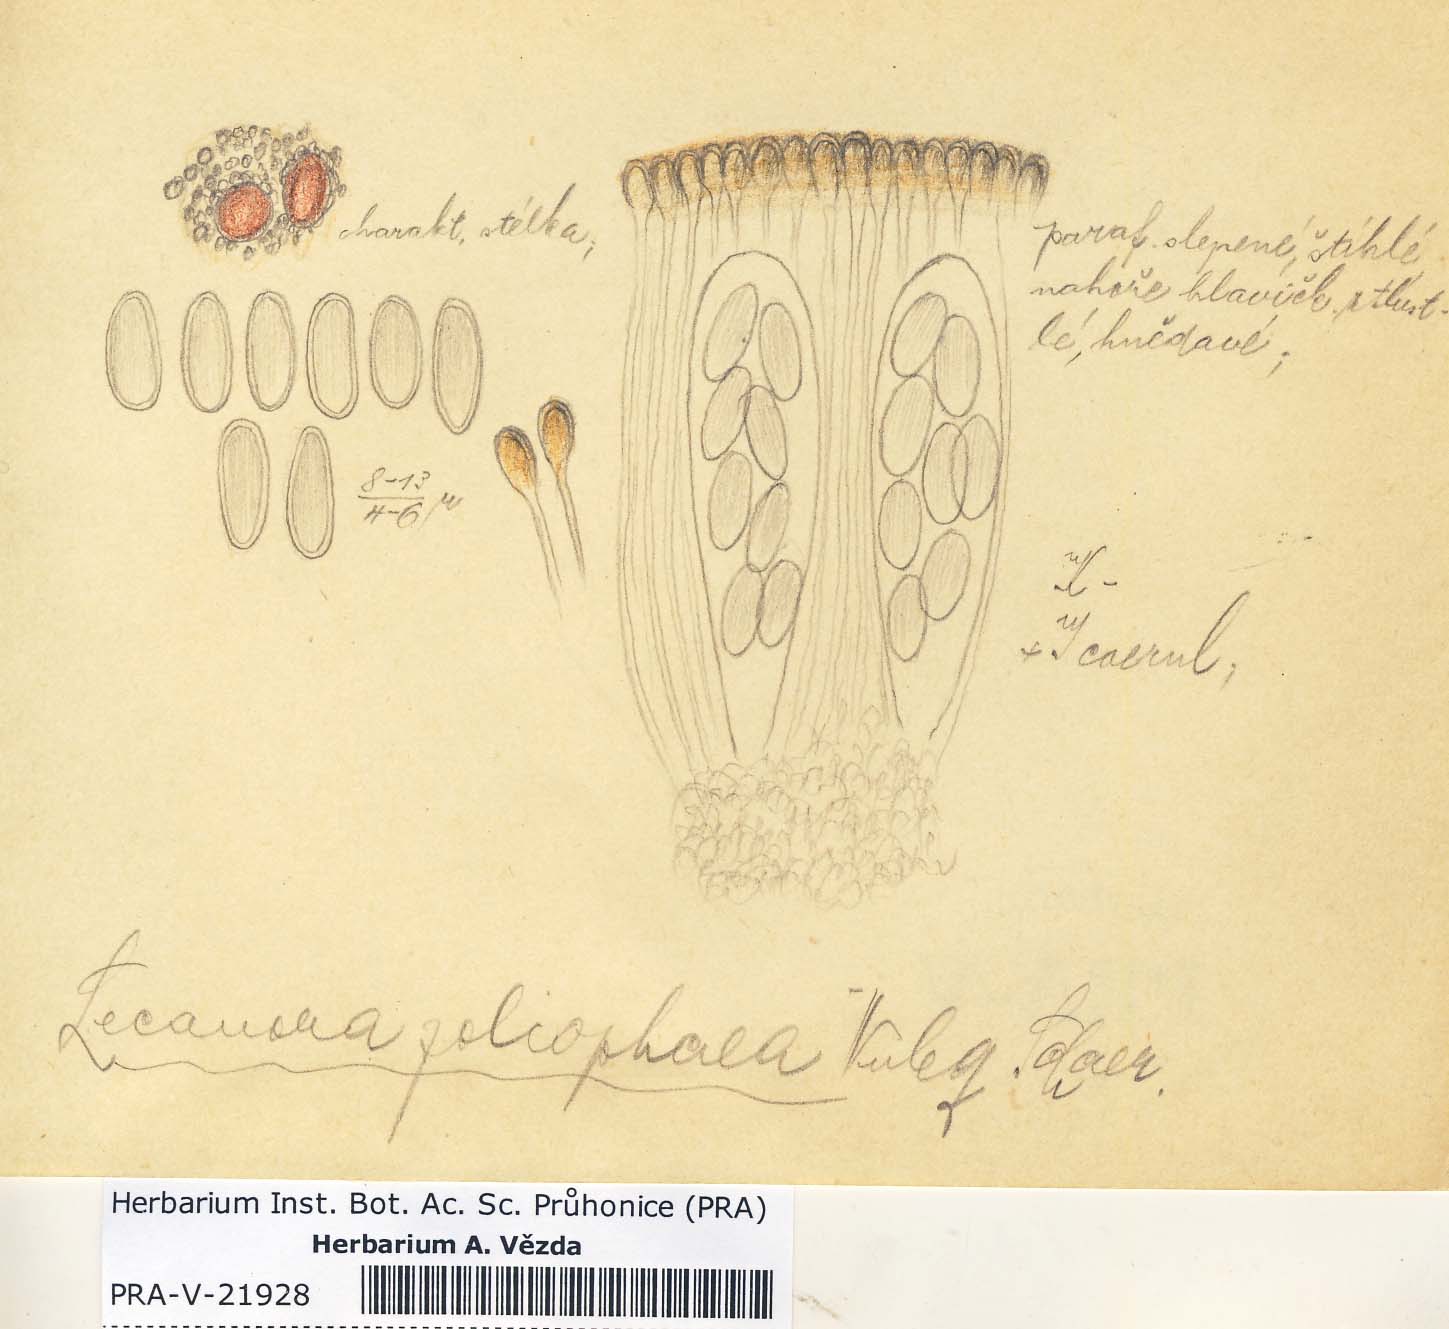 charakt. stélka;
paraf. slepené, štíhlé
nahoře hlavičk. ztlust-
lé, hnědavé;
8-13
4-6 µ
K -
+ J caerul;
Lecanora poliophaea Whlbg Schaer.
Herbarium Inst. Bot. Ac. Sc. Průhonice (PRA)
Herbarium A. Vězda
PRA-V-21928